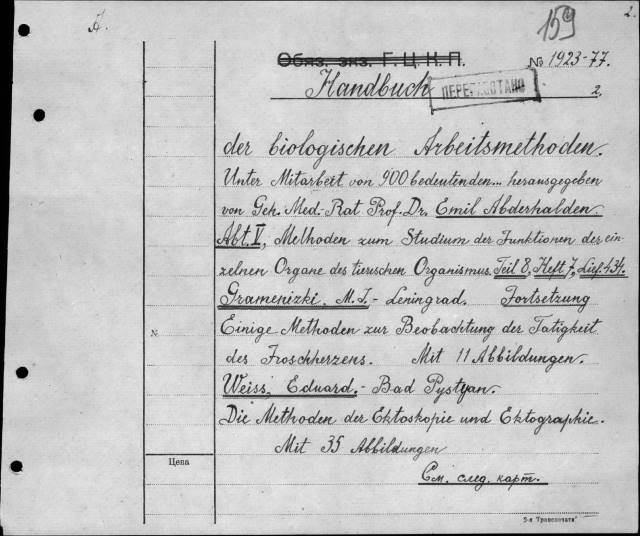 A.
159
2.
Обяз. экз. Г. Ц. К. П.
№ 1923-77.
Handbuch
ПЕРЕРАБОТАНО
2.
der biologischen Arbeitsmethoden.
Unter Mitarbeit von 900 bedeutenden... herausgegeben
von Geh. Med. Rat Prof. Dr. Emil Abderhalden.
Abt. V, Methoden zum Studium der Funktionen der ein-
zelnen Organe des tierischen Organismus. Teil 8, Heft 7, Lief. 434.
Gramenizki, M. I. - Leningrad. Fortsetzung
Einige Methoden zur Beobachtung der Tätigkeit
N.
des Froschherzens. Mit 11 Abbildungen.
Weiss, Eduard. - Bad Pystyan.
Die Methoden der Ektoskopie und Ektographie.
Mit 35 Abbildungen
Цена
См. след. карт.
5-я "Транспечать"